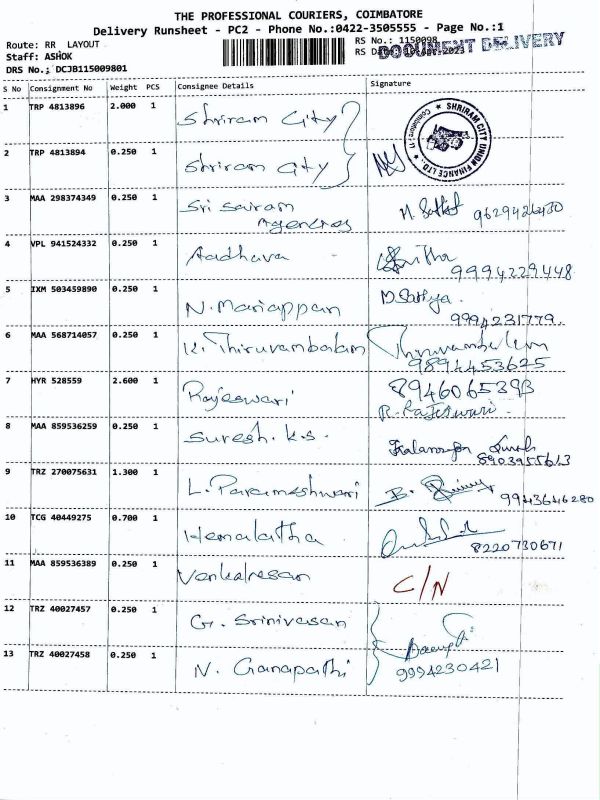 THE PROFESSIONAL COURIERS, COIMBATORE
Delivery Runsheet - PC2 - Phone No.:0422-3505555 - Page No.:1
Route: RR LAYOUT
RS No.: 1150098
Staff: ASHOK
RS
DOCUMENT DELIVERY
DRS No.: DCJB115009801
S No Consignment No Weight PCS Consignee Details Signature
1 TRP 4813896 2.000 1 Shriram City
SHRIRAM CITY UNION FINANCE LTD.,
2 TRP 4813894 0.250 1 Shriram City
3 MAA 298374349 0.250 1 Sri sairam
Agencies
4 VPL 941524332 0.250 1 Aadhava
9994229448
5 IXM 503459890 0.250 1 N. Mariappan D. Sathya.
9994231779.
6 MAA 568714057 0.250 1 K. Thiruvambalam Thiruvambalam
9894453625
7 HYR 528559 2.600 1 Rajeswari 8946065393
R. Rajeswari.
8 MAA 859536259 0.250 1 Suresh. K.S.
8903955613
9 TRZ 270075631 1.300 1 L. Parameshwari 9943646280
10 TCG 40449275 0.700 1 Hemalatha
8220730671
11 MAA 859536389 0.250 1 Venkatesan C/N
12 TRZ 40027457 0.250 1 G. Srinivasan
13 TRZ 40027458 0.250 1 N. Ganapathi
9994230421